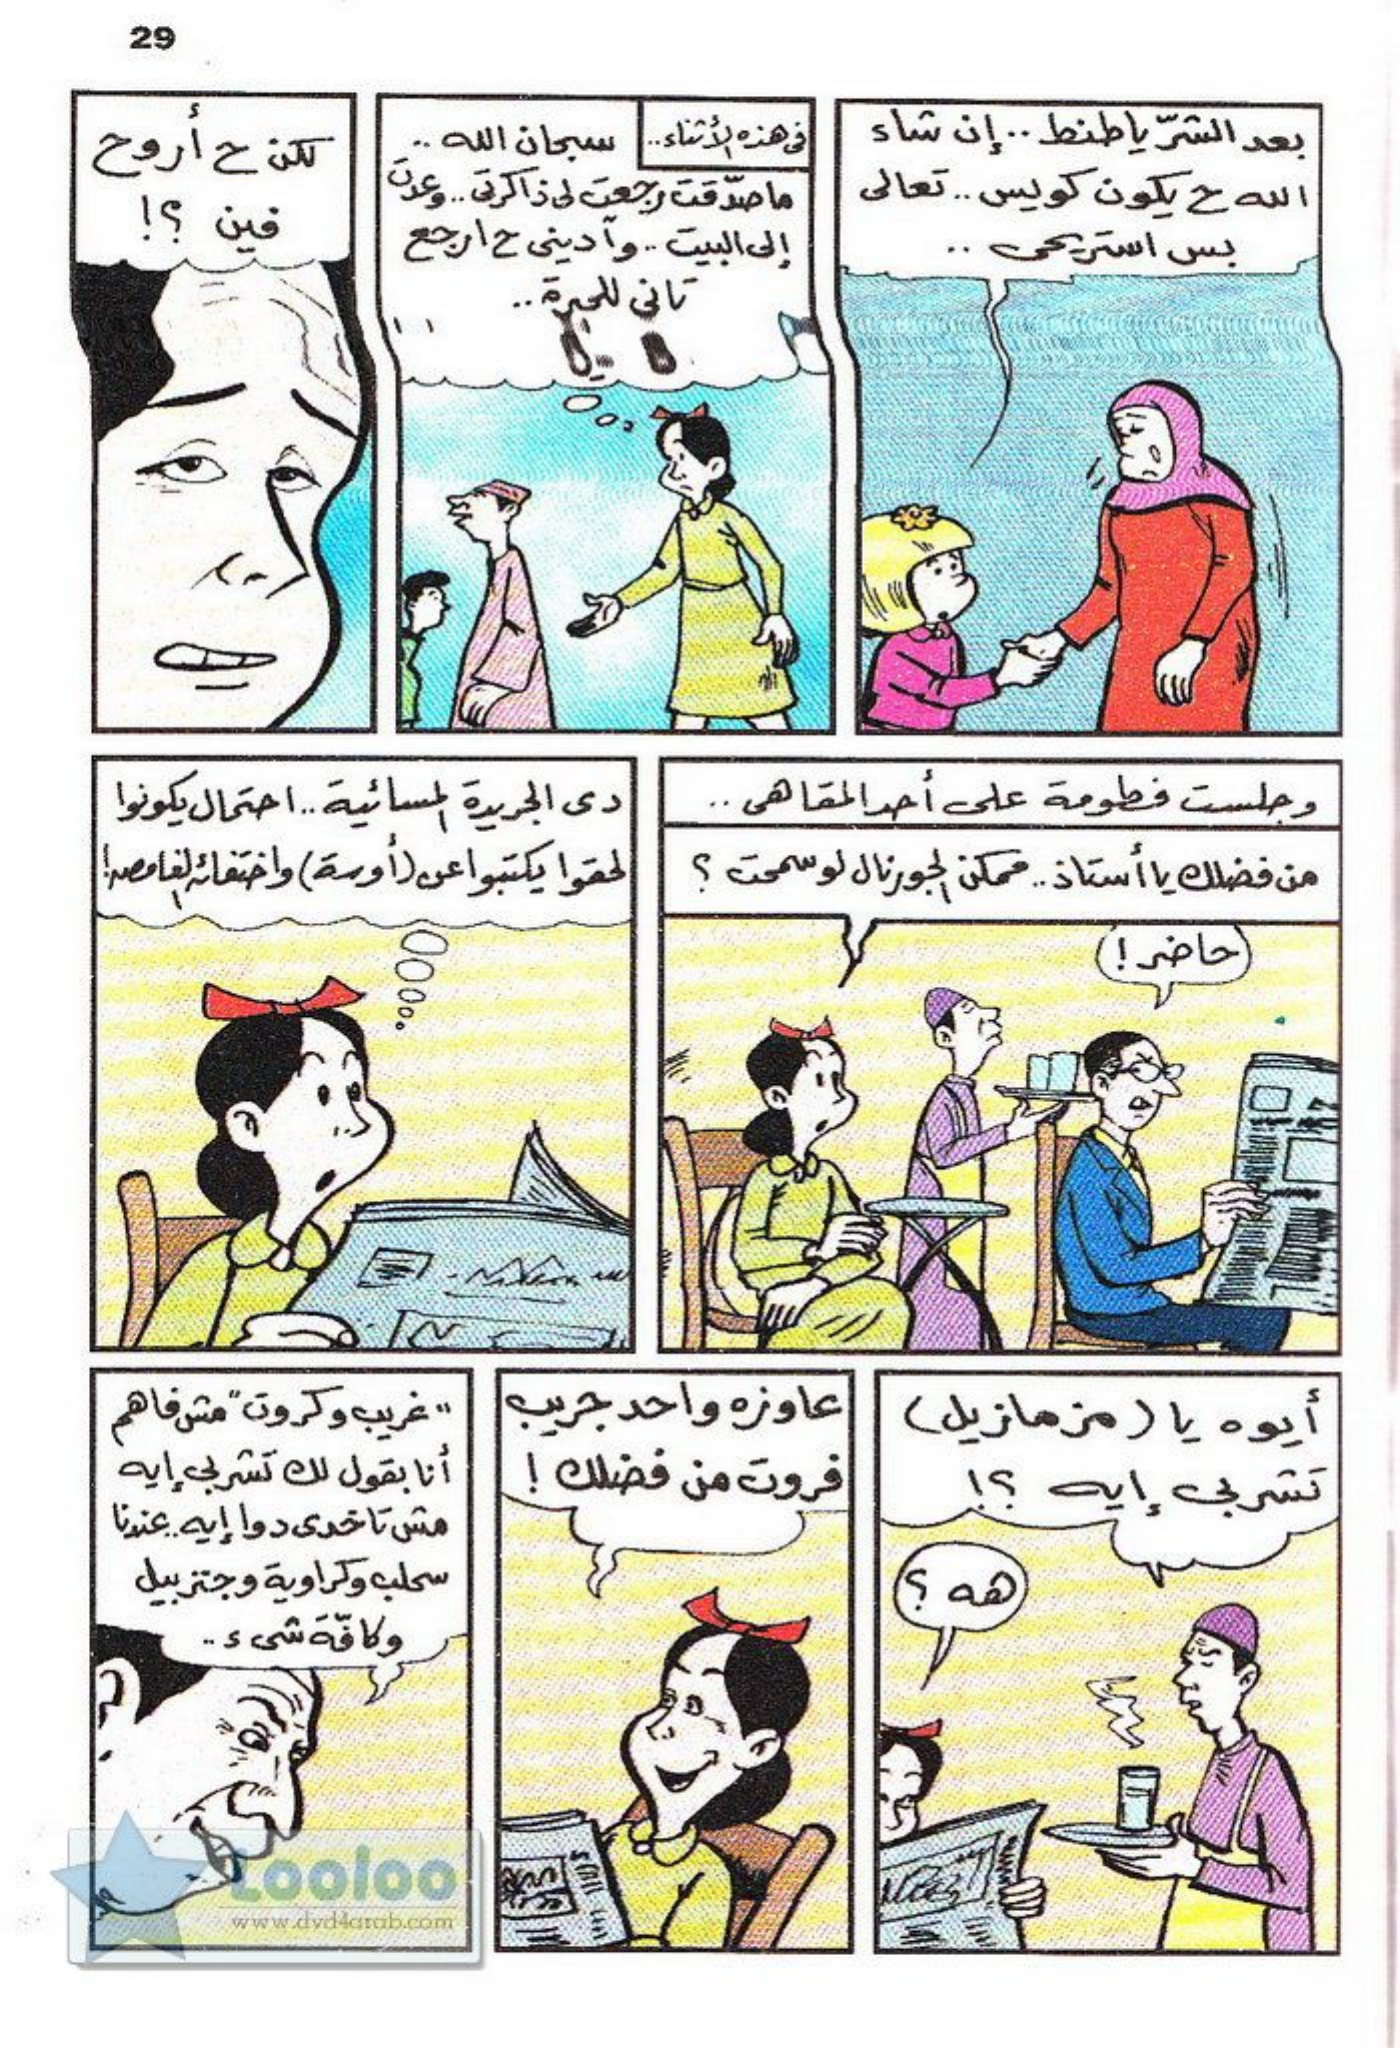 29
بعد الشرّ يا طنط .. إن شاء
الله ح يكون كويس .. تعالى
بس استريحى ..
فى هذه الأثناء ..
سبحان الله ..
ما صدّقت رجعت لى ذاكرتى .. وعدت
إلى البيت .. وآدينى ح ارجع
تانى للحيرة ..
لكن ح أروح
فين ؟!
وجلست فطومة على أحد المقاهى ..
من فضلك يا أستاذ .. ممكن الجورنال لو سمحت ؟
حاضر !
دى الجريدة المسائية .. احتمال يكونوا
لحقوا يكتبوا عن (أورسة) واختفائه الغامض!
أيوه يا (مزمازيل)
تشربى إيه ؟!
هه ؟
عاوزه واحد جريب
فروت من فضلك !
"غريب وكروت" مش فاهم
أنا بقول لك تشربى إيه
مش تاخدى دوا إيه .. عندنا
سحلب وكراوية وجنزبيل
وكافّة شىء ..
Looloo
www.dvd4arab.com